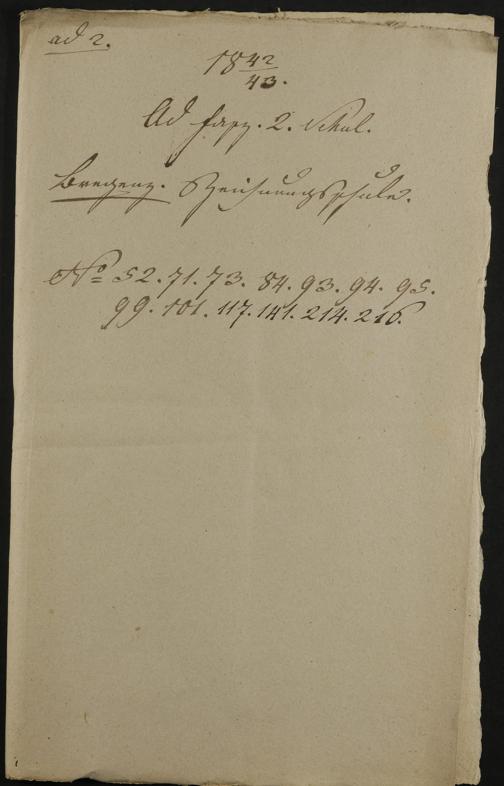 ad 2.
18 42/43.
Ad Fasz. 2. Schul.
Bregenz. Zeichnungsschule.
No 52. 71. 73. 84. 93. 94. 95.
99. 101. 117. 141. 214. 216.